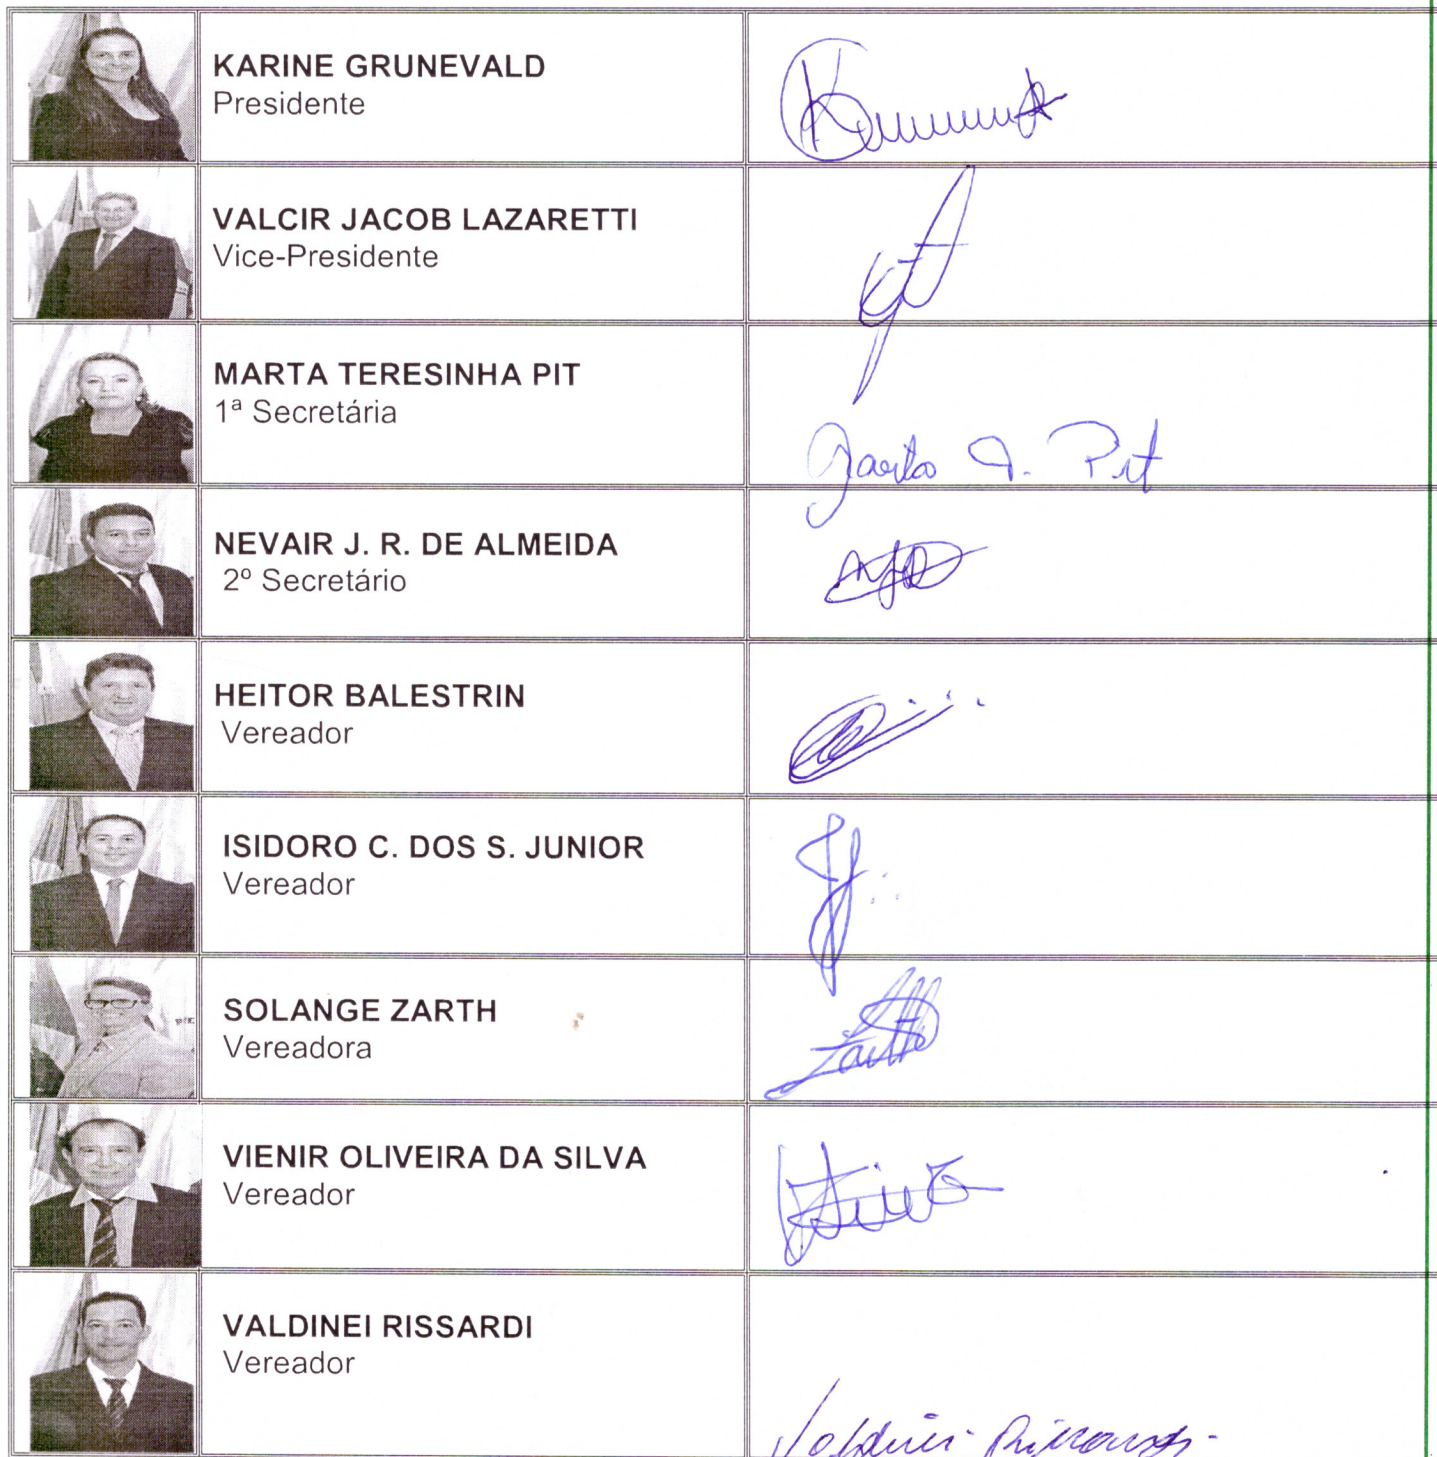 KARINE GRUNEVALD
Presidente
VALCIR JACOB LAZARETTI
Vice-Presidente
MARTA TERESINHA PIT
1ª Secretária
Marta T. Pit
NEVAIR J. R. DE ALMEIDA
2º Secretário
HEITOR BALESTRIN
Vereador
ISIDORO C. DOS S. JUNIOR
Vereador
SOLANGE ZARTH
Vereadora
Zarth
VIENIR OLIVEIRA DA SILVA
Vereador
VALDINEI RISSARDI
Vereador
Valdinei Rissardi